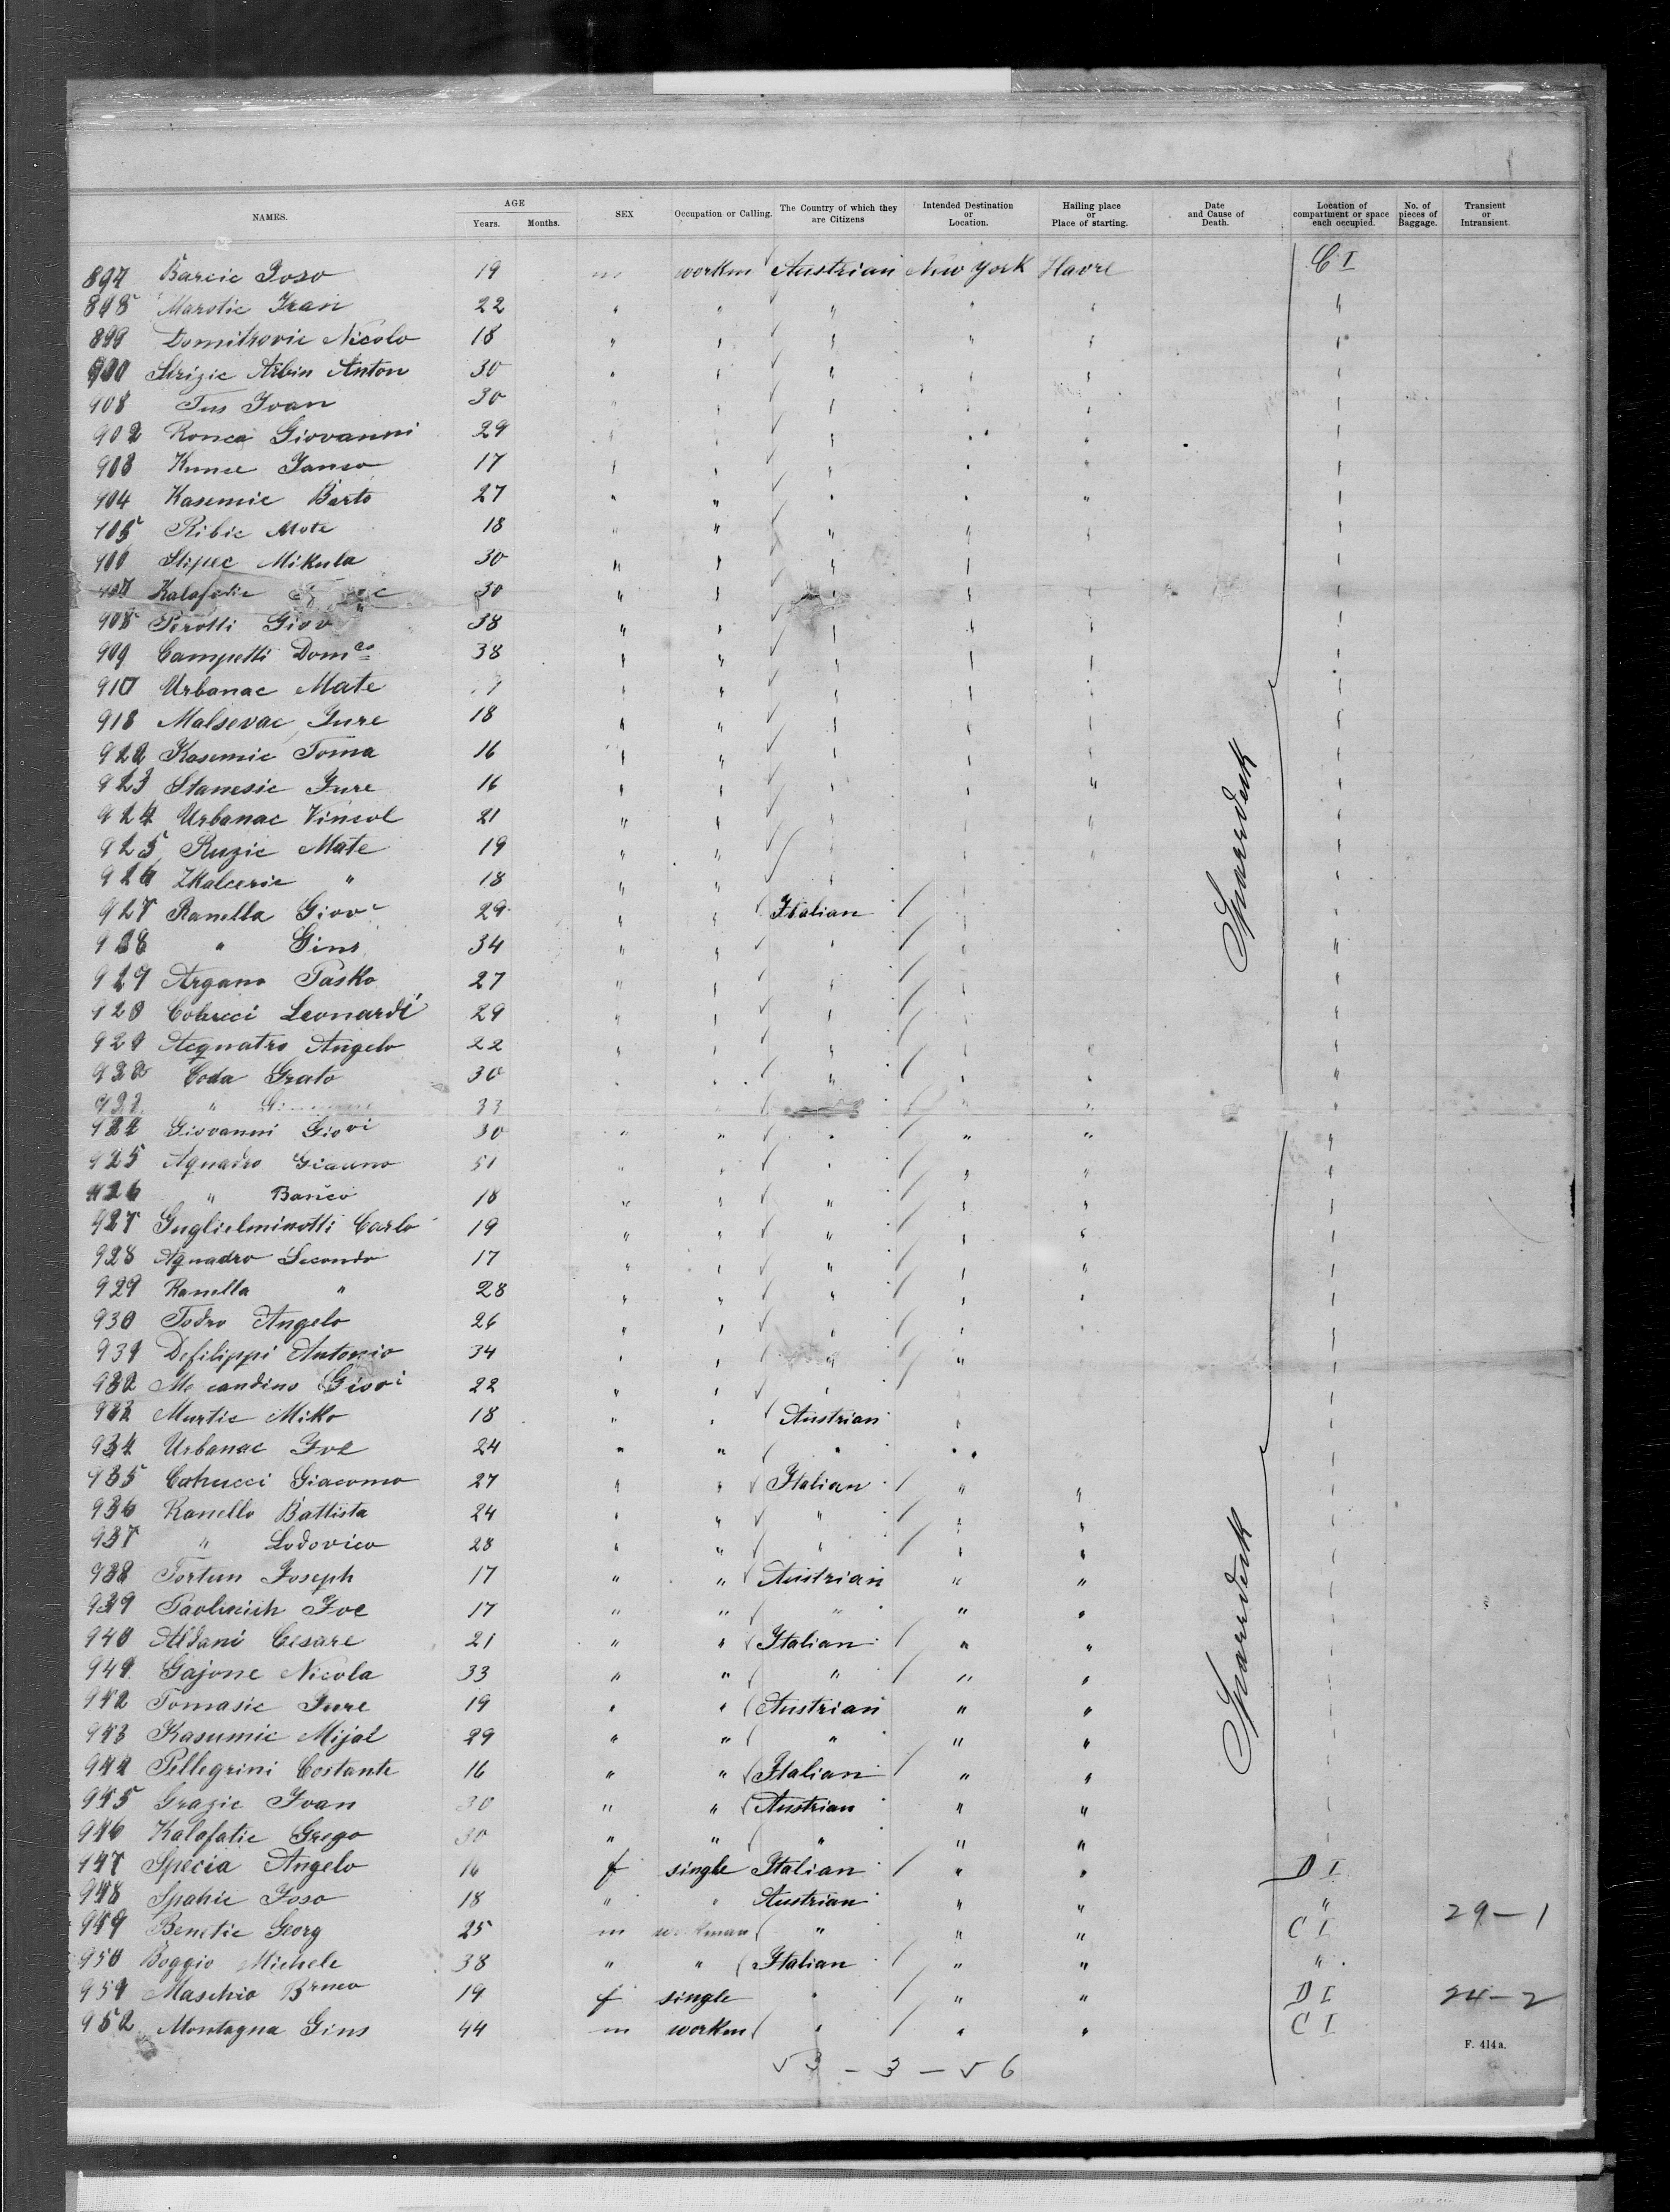 NAMES. AGE Years. Months. SEX Occupation or Calling. The Country of which they are Citizens Intended Destination or Location. Hailing place or Place of starting. Date and Cause of Death. Location of compartment or space each occupied. No. of pieces of Baggage. Transient or Intransient.
897 Barcic Joso 19 m workm Austrian New York Havre C I
898 Marotic Ivan 22 " " " " " "
899 Domitrovic Nicolo 18 " " " " " "
900 Strizic Arbin Anton 30 " " " " " "
908 Tus Ivan 30 " " " " " "
902 Ronca Giovanni 29 " " " " " "
903 Kunce Janco 17 " " " " " "
904 Kasemic Barto 27 " " " " " "
905 Ribic Mate 18 " " " " " "
906 Stipec Mikula 30 " " " " " "
907 Kalafatic 30 " " " " " "
908 Perotti Giov 38 " " " " " "
909 Campetti Dom co 38 " " " " " "
910 Urbanac Mate " " " " " "
918 Malsevac Jure 18 " " " " " "
922 Kosemic Toma 16 " " " " " "
923 Stanesic Jure 16 " " " " " "
924 Urbanac Vincol 21 " " " " " "
925 Ruzic Mate 19 " " " " " "
926 Zkalceric " 18 " " " " "
927 Ranella Giov 29 " " Italian " "
928 " Gius 34 " " " " "
929 Argano Pasko 27 " " " " "
920 Leonardi 29 " " " " "
921 Acquatro Angelo 22 " " " " " "
922 Coda Grato 30 " " " " " "
923 " 33 " " " " "
924 Giovanni Giovi 30 " " " " " "
925 Aquadro Giacomo 51 " " " " " "
926 " Barico 18 " " " " " "
927 Guglielminotti Carlo 19 " " " " " "
928 Aquadro Secondo 17 " " " " " "
929 Ranella " 28 " " " " " "
930 Todro Angelo 26 " " " " "
931 Defilippi Antonio 34 " " " " "
932 Giovi 22 " " " "
933 Murtic Miko 18 " " Austrian " "
934 Urbanac Ive 24 " " " " "
935 Giacomo 27 " " Italian " " "
936 Ranello Battista 24 " " " " " "
937 " Lodovico 28 " " " " " "
938 Tortun Joseph 17 " " Austrian " " "
939 Ive 17 " " " " " "
940 Aldani Cesare 21 " " Italian " " "
941 Gajone Nicola 33 " " " " " "
942 Tomasic Jure 19 " " Austrian " " "
943 Kasumic Mijal 29 " " " " " "
944 Pellegrini Costante 16 " " Italian " " "
945 Grazic Ivan 30 " " Austrian " " "
946 Kalafatic Grego 30 " " " " " "
947 Specia Angelo 16 f single Italian " " D I
948 Spahic Joso 18 " " Austrian " " "
949 Benetic Georg 25 m workman " " " C I 29 - 1
950 Boggio Michele 38 " " Italian " " "
951 Maschio 19 f single " " " D I 24 - 2
952 Montagna Gius 44 m workm " " " C I
53 - 3 - 56
F. 414a.
Spaardeck
Spaardeck